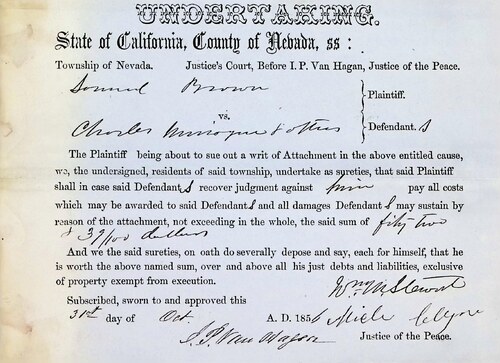 UNDERTAKING.
State of California, County of Nevada, ss :
Township of Nevada. Justice's Court, Before I. P. Van Hagan, Justice of the Peace.
Samuel Brown
Plaintiff.
vs.
Charles & others
Defendant.s
The Plaintiff being about to sue out a writ of Attachment in the above entitled cause,
we, the undersigned, residents of said township, undertake as sureties, that said Plaintiff
shall in case said Defendants recover judgment against him pay all costs
which may be awarded to said Defendants and all damages Defendants may sustain by
reason of the attachment, not exceeding in the whole, the said sum of fifty two
& 39/100 dollars
And we the said sureties, on oath do severally depose and say, each for himself, that he
is worth the above named sum, over and above all his just debts and liabilities, exclusive
of property exempt from execution.
Wm M Stewart
Subscribed, sworn to and approved this
31st day of Oct. A. D. 1856
I. P. Van Hagan Justice of the Peace.